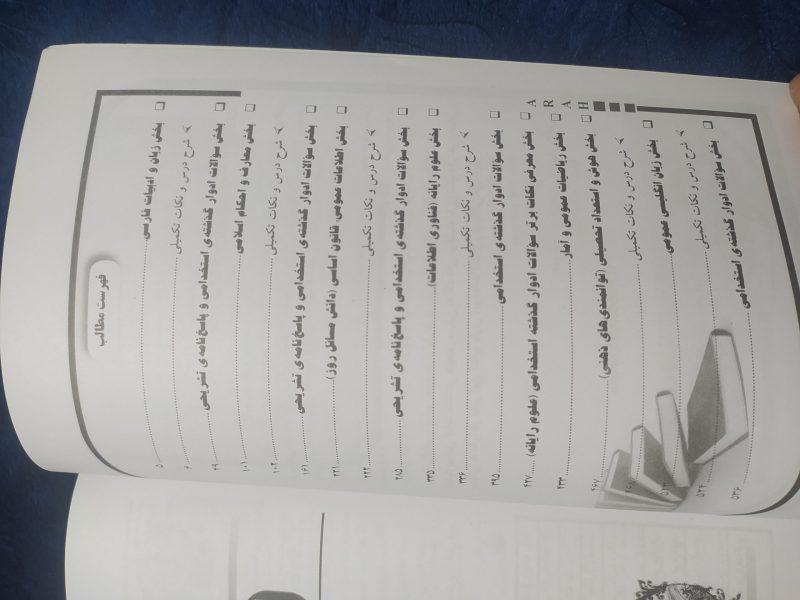 فهرست مطالب
❑ بخش زبان و ادبیات فارسی ........ ۵
➢ شرح درس و نکات تکمیلی ........ ۶
❑ بخش سؤالات ادوار گذشته‌ی استخدامی و پاسخ‌نامه‌ی تشریحی ........ ۴۹
❑ بخش معارف و احکام اسلامی ........ ۱۰۱
➢ شرح درس و نکات تکمیلی ........ ۱۰۲
❑ بخش سؤالات ادوار گذشته‌ی استخدامی و پاسخ‌نامه‌ی تشریحی ........ ۱۶۱
❑ بخش اطلاعات عمومی قانون اساسی (دانش مسائل روز) ........ ۲۲۱
➢ شرح درس و نکات تکمیلی ........ ۲۲۲
❑ بخش سؤالات ادوار گذشته‌ی استخدامی و پاسخ‌نامه‌ی تشریحی ........ ۲۸۵
❑ بخش علوم رایانه (فناوری اطلاعات) ........ ۳۳۵
➢ شرح درس و نکات تکمیلی ........ ۳۳۶
❑ بخش سؤالات ادوار گذشته‌ی استخدامی ........ ۳۹۵
❑ بخش معرفی نکات برتر سؤالات ادوار گذشته استخدامی (علوم رایانه) .... ۴۲۷
❑ بخش ریاضیات عمومی و آمار ........ ۴۳۳
❑ بخش هوش و استعداد تحصیلی (توانمندی‌های ذهنی) ........ ۴۶۷
➢ شرح درس و نکات تکمیلی ........
❑ بخش زبان انگلیسی عمومی ........
➢ شرح درس و نکات تکمیلی ........ ۵۲۴
❑ بخش سؤالات ادوار گذشته‌ی استخدامی ........ ۵۳۶
A R A H